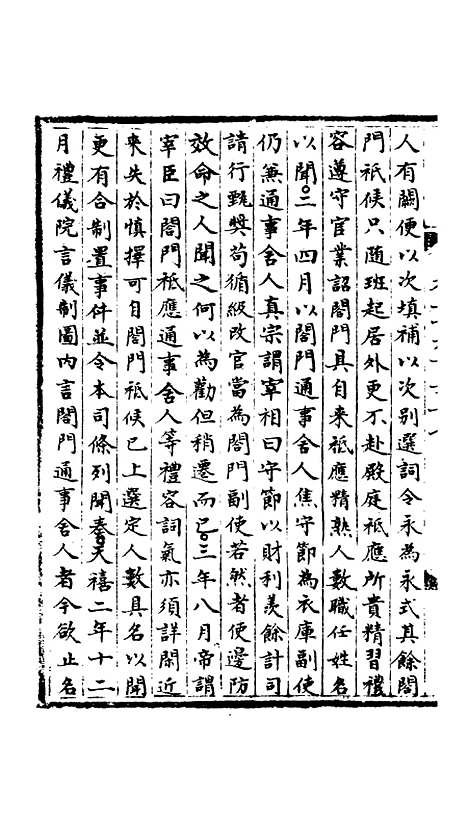 人有闕便以次填補以次别選詞令永為永式其餘閤
門祇候只随班起居外更不赴殿庭祗應所貴精習禮
容遵守官業詔閤門具自来祗應精熟人數職任姓名
以聞○二年四月以閤門通事舍人焦守節為衣庫副使
仍兼通事舍人真宗謂宰相曰守節以財利羡餘計司
請行甄獎苟循級改官當為閤門副使若然者便邊防
效命之人聞之何以為勸但稍遷而已○三年八月帝謂
宰臣曰閤門祗應通事舍人等禮容詞氣亦須詳閑近
来失於慎擇可自閤門祇候已上選定人數具名以聞
更有合制置事件並令本司條列聞奏○天禧二年十二
月禮儀院言儀制圖内言閤門通事舍人者今欲止名